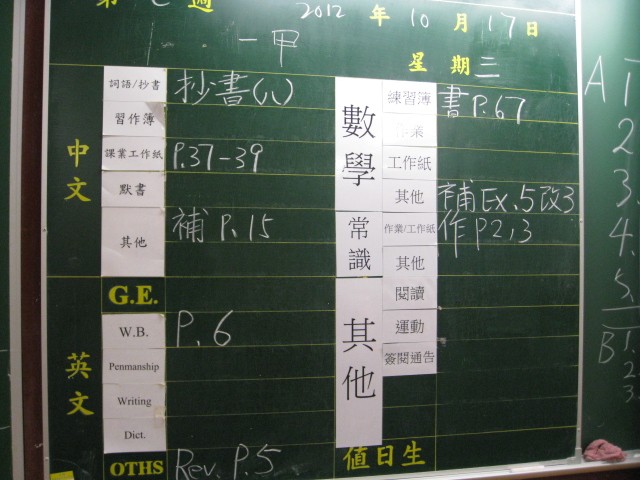 第 七 週 2012 年 10 月 17 日
一甲
星期三
中文
詞語/抄書 抄書(八)
習作簿
課業工作紙 P.37-39
默書
其他 補 P.15
英文
G.E.
W.B. P.6
Penmanship
Writing
Dict.
OTHS Rev. P.5
數學
練習簿 書 P.67
作業
工作紙
其他 補 Ex.5改3
常識
作業/工作紙 作 P2,3
其他
其他
閱讀
運動
簽閱通告
值日生
A 1
2.
3.
4.
5.
B 1.
2.
3.